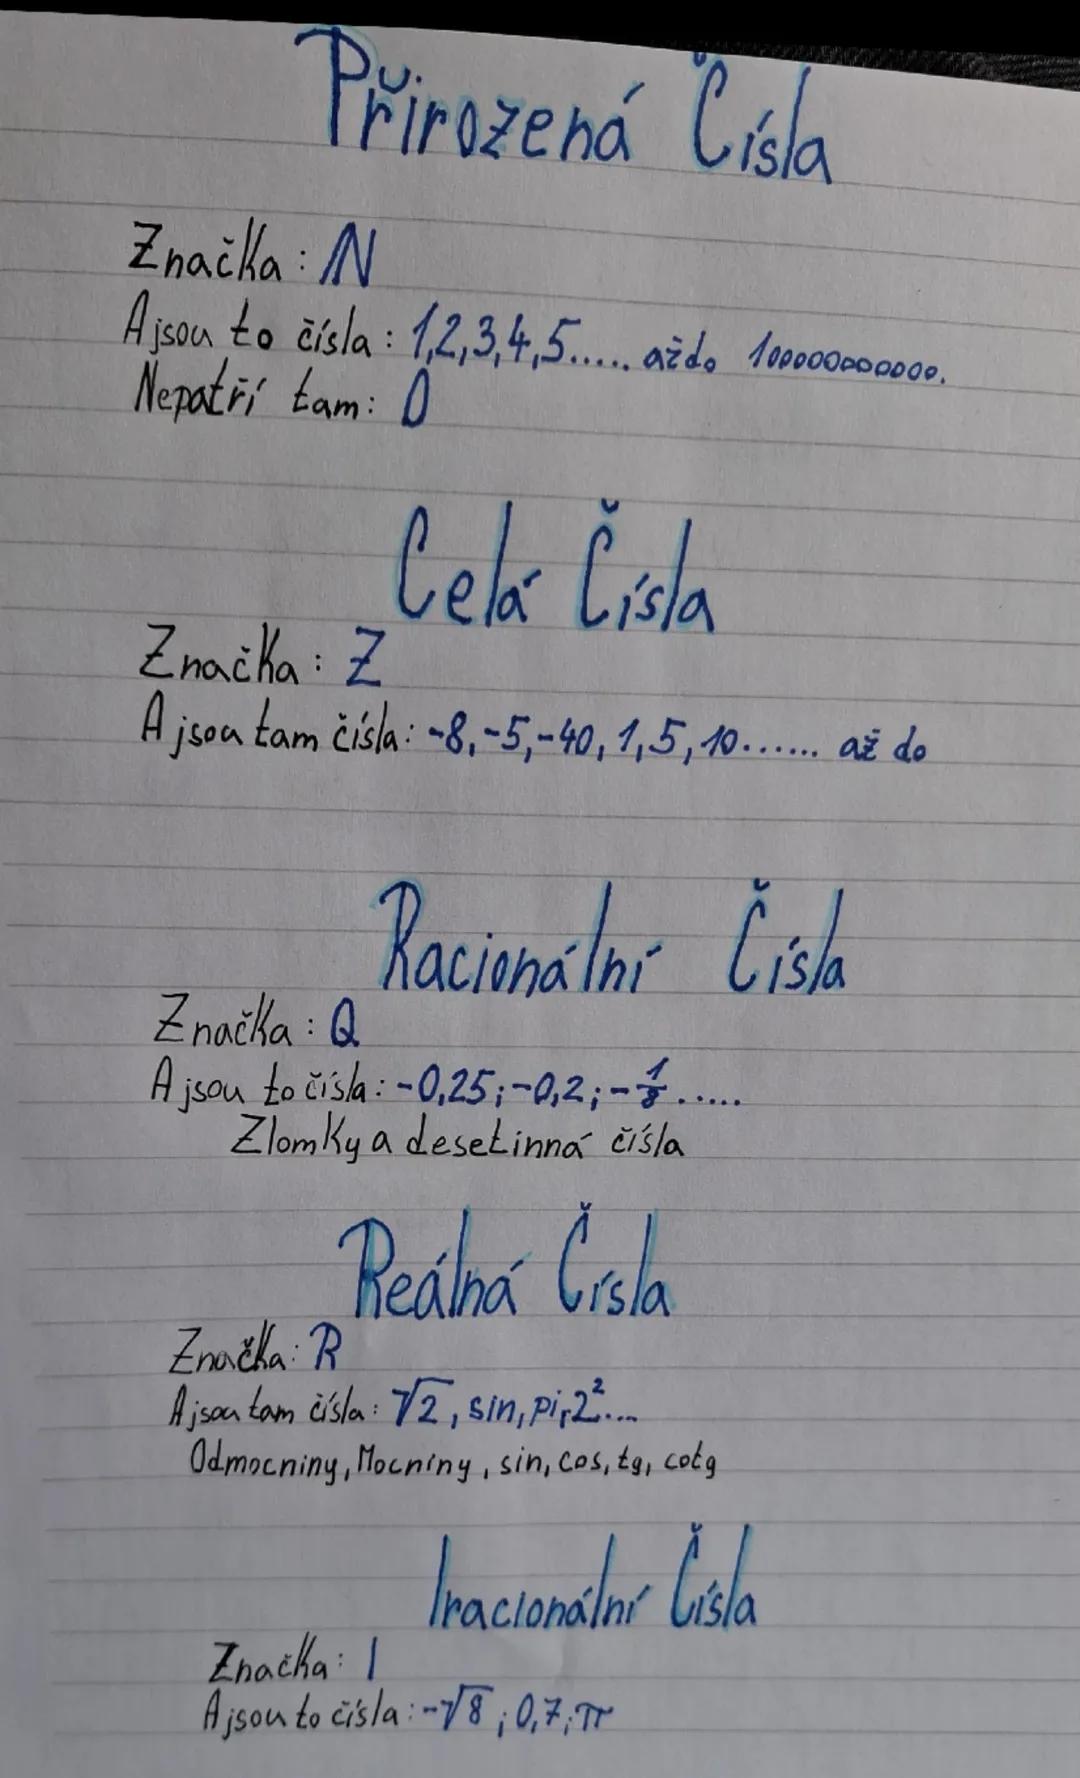 Přirozená Čísla
Značka: N
A jsou to čísla: 1,2,3,4,5..... až do 100000000000.
Nepatří tam: 0
Celá Čísla
Značka: Z
A jsou tam čísla: -8,-5,-40, 1,5,10...... až do
Racionální Čísla
Značka: Q
A jsou to čísla: -0,25;-0,2;-1/8.....
Zlomky a desetinná čísla
Reálná Čísla
Značka: R
A jsou tam čísla: √2, sin, pi, 2²....
Odmocniny, Mocniny, sin, cos, tg, cotg
Iracionální Čísla
Značka: I
A jsou to čísla: -√8; 0,7; π